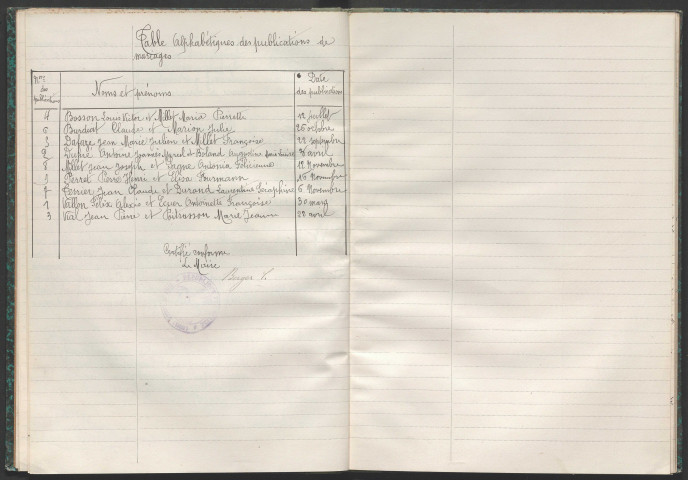 Table Alphabétiques des publications de
mariages
Nos des publications Noms et prénoms Date des publications
4 Bosson Louis Victor et Millet Maria Pierrette 12 juillet
6 Burdiat Claude et Marion Julie 25 octobre
5 Jean Marie Julien et Millet Françoise 27 septembre
2 Dupré Antoine Joannès Marcel et Boland Augustine 3 avril
8 Millet Jean Joseph et Antonia 12 Novembre
9 Perret Pierre Henri et Rosa 16 Novembre
7 Perrier Jean Claude et Durand Laurentine Joséphine 6 Novembre
1 Vallon Félix Alexis et Antoinette Françoise 30 mars
3 Vial Jean Pierre et Poitrasson Marie Jeanne 20 avril
Certifié conforme
Le Maire
Berger